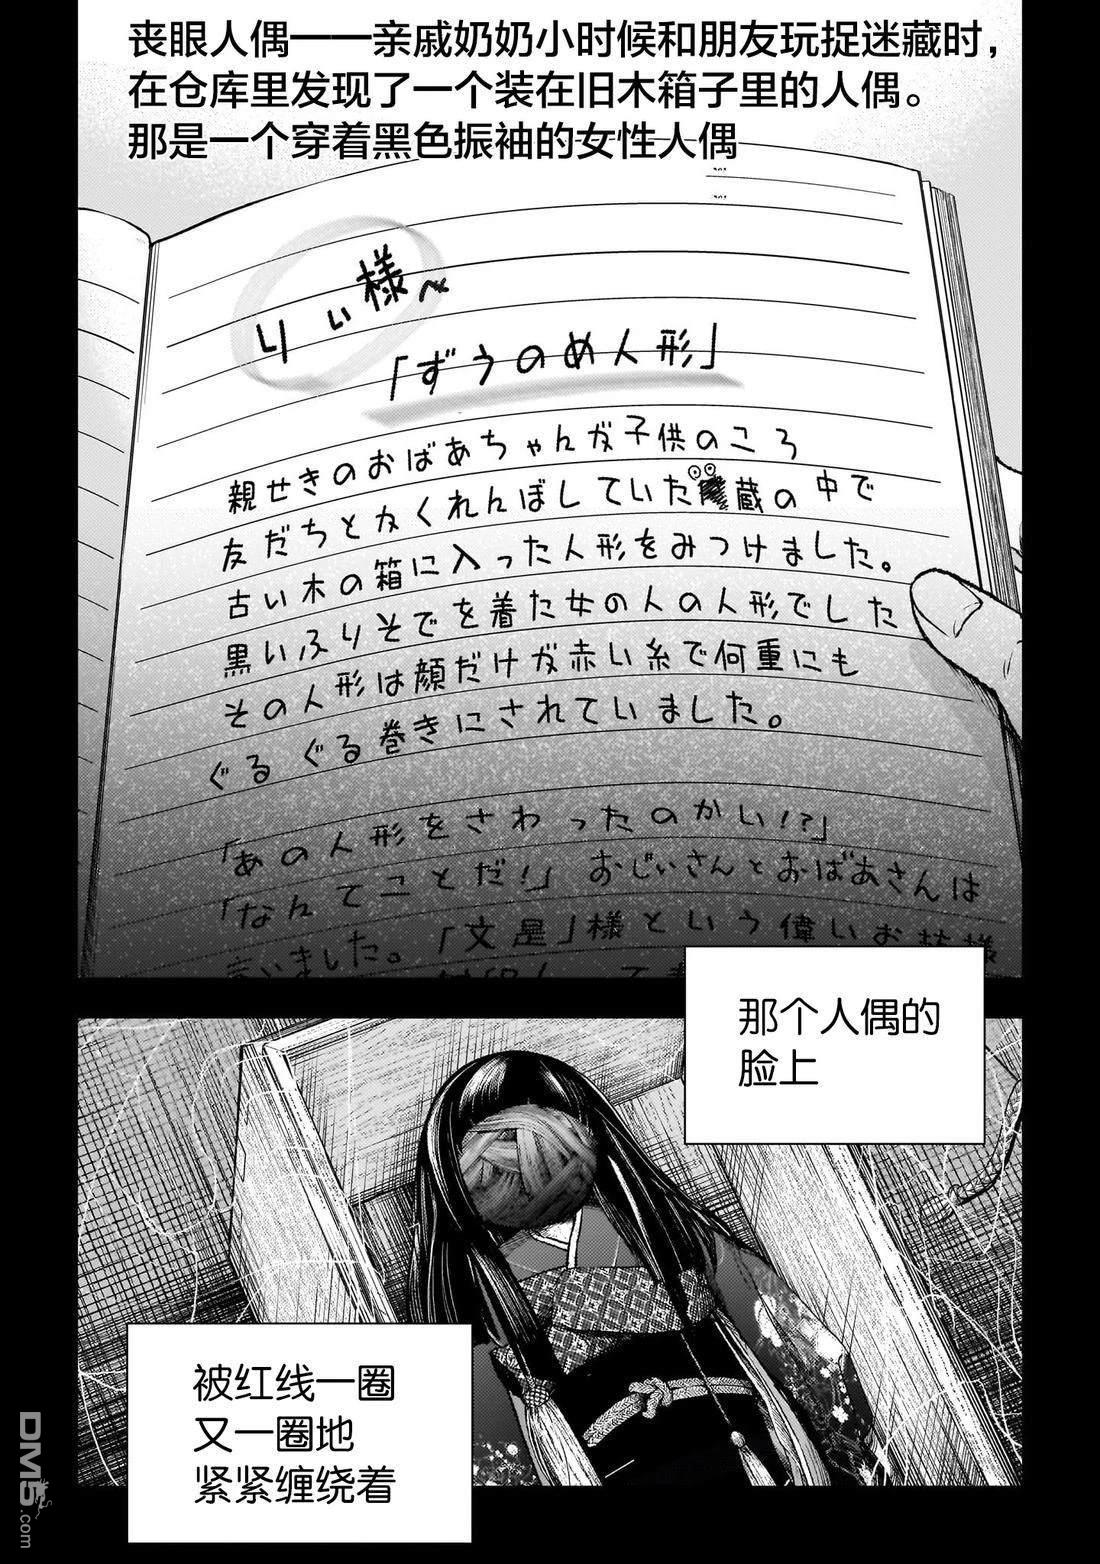 丧眼人偶——亲戚奶奶小时候和朋友玩捉迷藏时，
在仓库里发现了一个装在旧木箱子里的人偶。
那是一个穿着黑色振袖的女性人偶
りぃ様へ
「ずうのめ人形」
親せきのおばあちゃんが子供のころ
友だちとかくれんぼしていた蔵の中で
古い木の箱に入った人形をみつけました。
黒いふりそでを着た女の人の人形でした
その人形は顔だけが赤い糸で何重にも
ぐるぐる巻きにされていました。
「あの人形をさわったのかい!?」
「なんてことだ!」おじいさんとおばあさんは
言いました。「文是」様という偉いお
那个人偶的
脸上
被红线一圈
又一圈地
紧紧缠绕着
DM5
.com